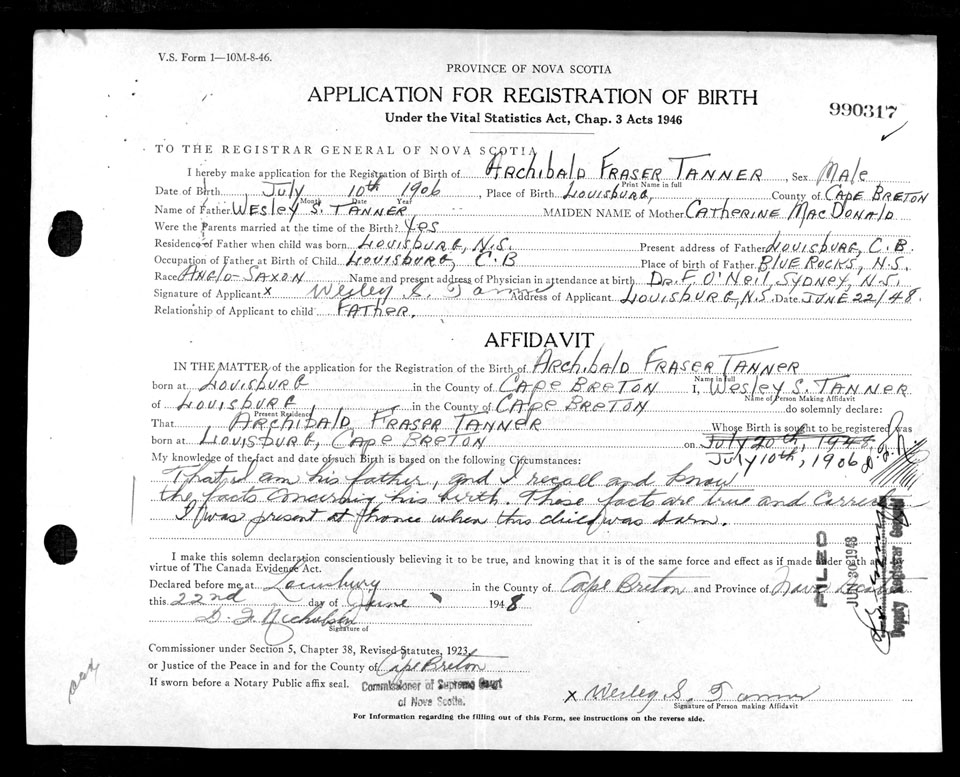 V.S. Form 1—10M-8-46.
PROVINCE OF NOVA SCOTIA
APPLICATION FOR REGISTRATION OF BIRTH
Under the Vital Statistics Act, Chap. 3 Acts 1946
990317
TO THE REGISTRAR GENERAL OF NOVA SCOTIA
I hereby make application for the Registration of Birth of ARCHIBALD FRASER TANNER, Sex MALE
Print Name in full
Date of Birth JULY 10th 1906, Place of Birth LOUISBURG, County of CAPE BRETON
Month Date Year
Name of Father WESLEY S. TANNER MAIDEN NAME of Mother CATHERINE MACDONALD
Were the Parents married at the time of the Birth? YES
Residence of Father when child was born LOUISBURG, N.S. Present address of Father LOUISBURG, C.B.
Occupation of Father at Birth of Child LOUISBURG, C.B Place of birth of Father BLUE ROCKS, N.S.
Race ANGLO-SAXON Name and present address of Physician in attendance at birth DR. F. O'NEIL, SYDNEY, N.S.
Signature of Applicant x Wesley S. Tanner Address of Applicant LOUISBURG, N.S. Date JUNE 22/48.
Relationship of Applicant to child FATHER.
AFFIDAVIT
IN THE MATTER of the application for the Registration of the Birth of ARCHIBALD FRASER TANNER
Name in full
born at LOUISBURG in the County of CAPE BRETON I, WESLEY S. TANNER
Name of Person Making Affidavit
of LOUISBURG in the County of CAPE BRETON do solemnly declare:
Present Residence
That ARCHIBALD FRASER TANNER Whose Birth is sought to be registered was
born at LOUISBURG, CAPE BRETON on JULY 20th, 1948,
JULY 10th, 1906
My knowledge of the fact and date of such Birth is based on the following Circumstances:
That I am his father, and I recall and know
the facts concerning his birth. These facts are true and correct
I was present at home when this child was born.
I make this solemn declaration conscientiously believing it to be true, and knowing that it is of the same force and effect as if made under oath and
virtue of The Canada Evidence Act.
Declared before me at Louisburg in the County of Cape Breton and Province of Nova Scotia
this 22nd day of June 1948
Signature of
Commissioner under Section 5, Chapter 38, Revised Statutes, 1923,
or Justice of the Peace in and for the County of Cape Breton
If sworn before a Notary Public affix seal.
Commissioner of Supreme Court
of Nova Scotia.
x Wesley S. Tanner
Signature of Person making Affidavit
For Information regarding the filling out of this Form, see instructions on the reverse side.
FILED
JUN 30 1948
Deputy Registrar General